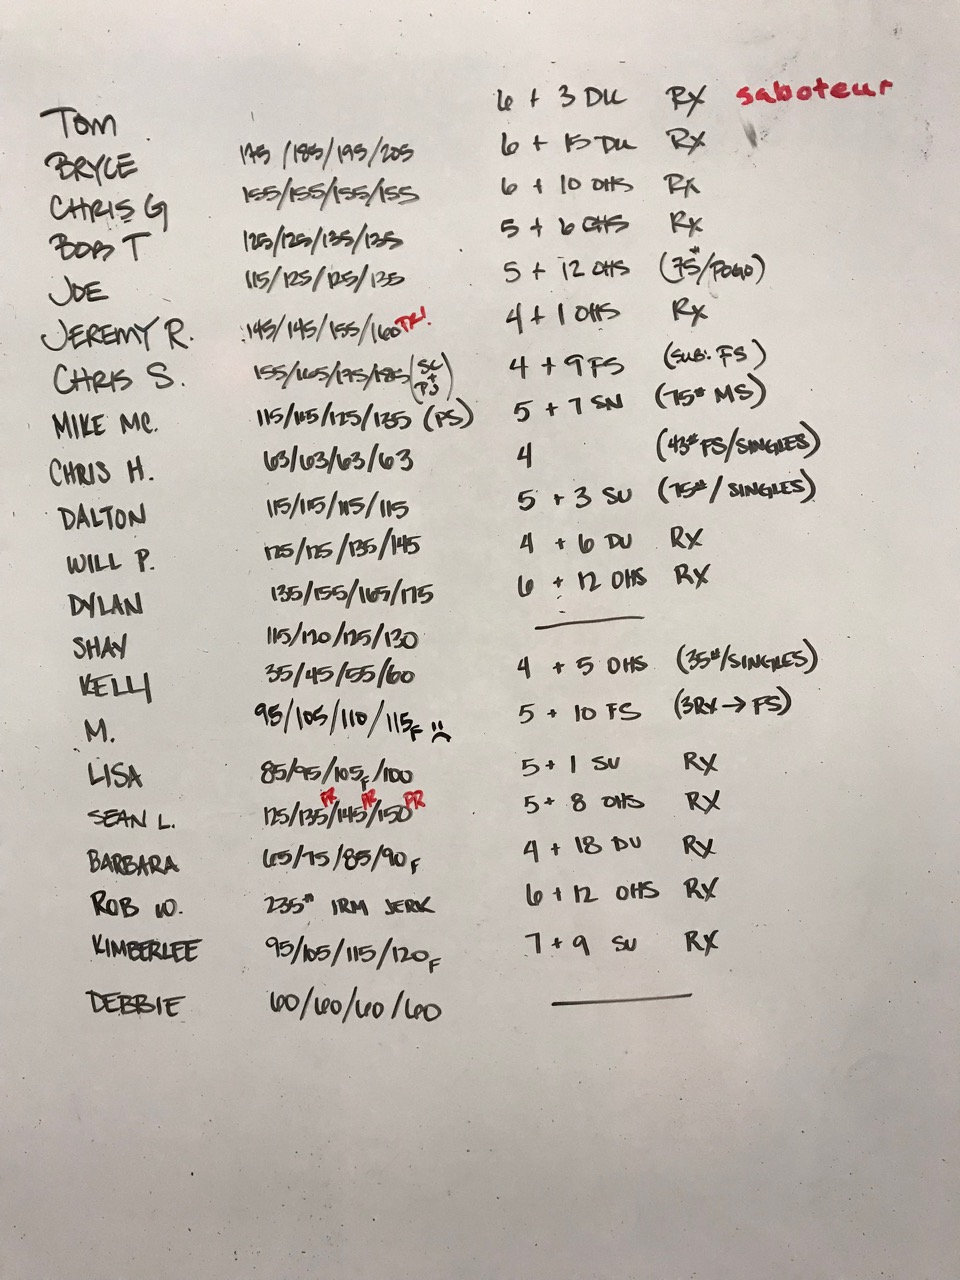 TOM 6 + 3 DU RX saboteur
BRYCE 175/185/195/205 6 + 15 DU RX
CHRIS G 155/155/155/155 6 + 10 OHS RX
BOB T 125/125/135/135 5 + 6 OHS RX
JOE 115/125/125/135 5 + 12 OHS (75#/POGO)
JEREMY R. 145/145/155/160 4 + 1 OHS RX
CHRIS S. 155/165/175/185 (SC + PJ) 4 + 9 FS (SUB: FS)
MIKE MC. 115/115/125/135 (PS) 5 + 7 SN (75# MS)
CHRIS H. 63/63/63/63 4 (43# FS/SINGLES)
DALTON 115/115/115/115 5 + 3 SU (75#/SINGLES)
WILL P. 125/125/135/145 4 + 6 DU RX
DYLAN 135/155/165/175 6 + 12 OHS RX
SHAY 115/120/125/130
KELLY 35/45/55/60 4 + 5 OHS (35#/SINGLES)
M. 95/105/110/115F 5 + 10 FS (3RX → FS)
LISA 85/95/105F/100 5 + 1 SU RX
SEAN L. 125/135 PR/145 PR/150 PR 5 + 8 OHS RX
BARBARA 65/75/85/90F 4 + 18 DU RX
ROB W. 235# 1RM JERK 6 + 12 OHS RX
KIMBERLEE 95/105/115/120F 7 + 9 SU RX
DEBBIE 60/60/60/60